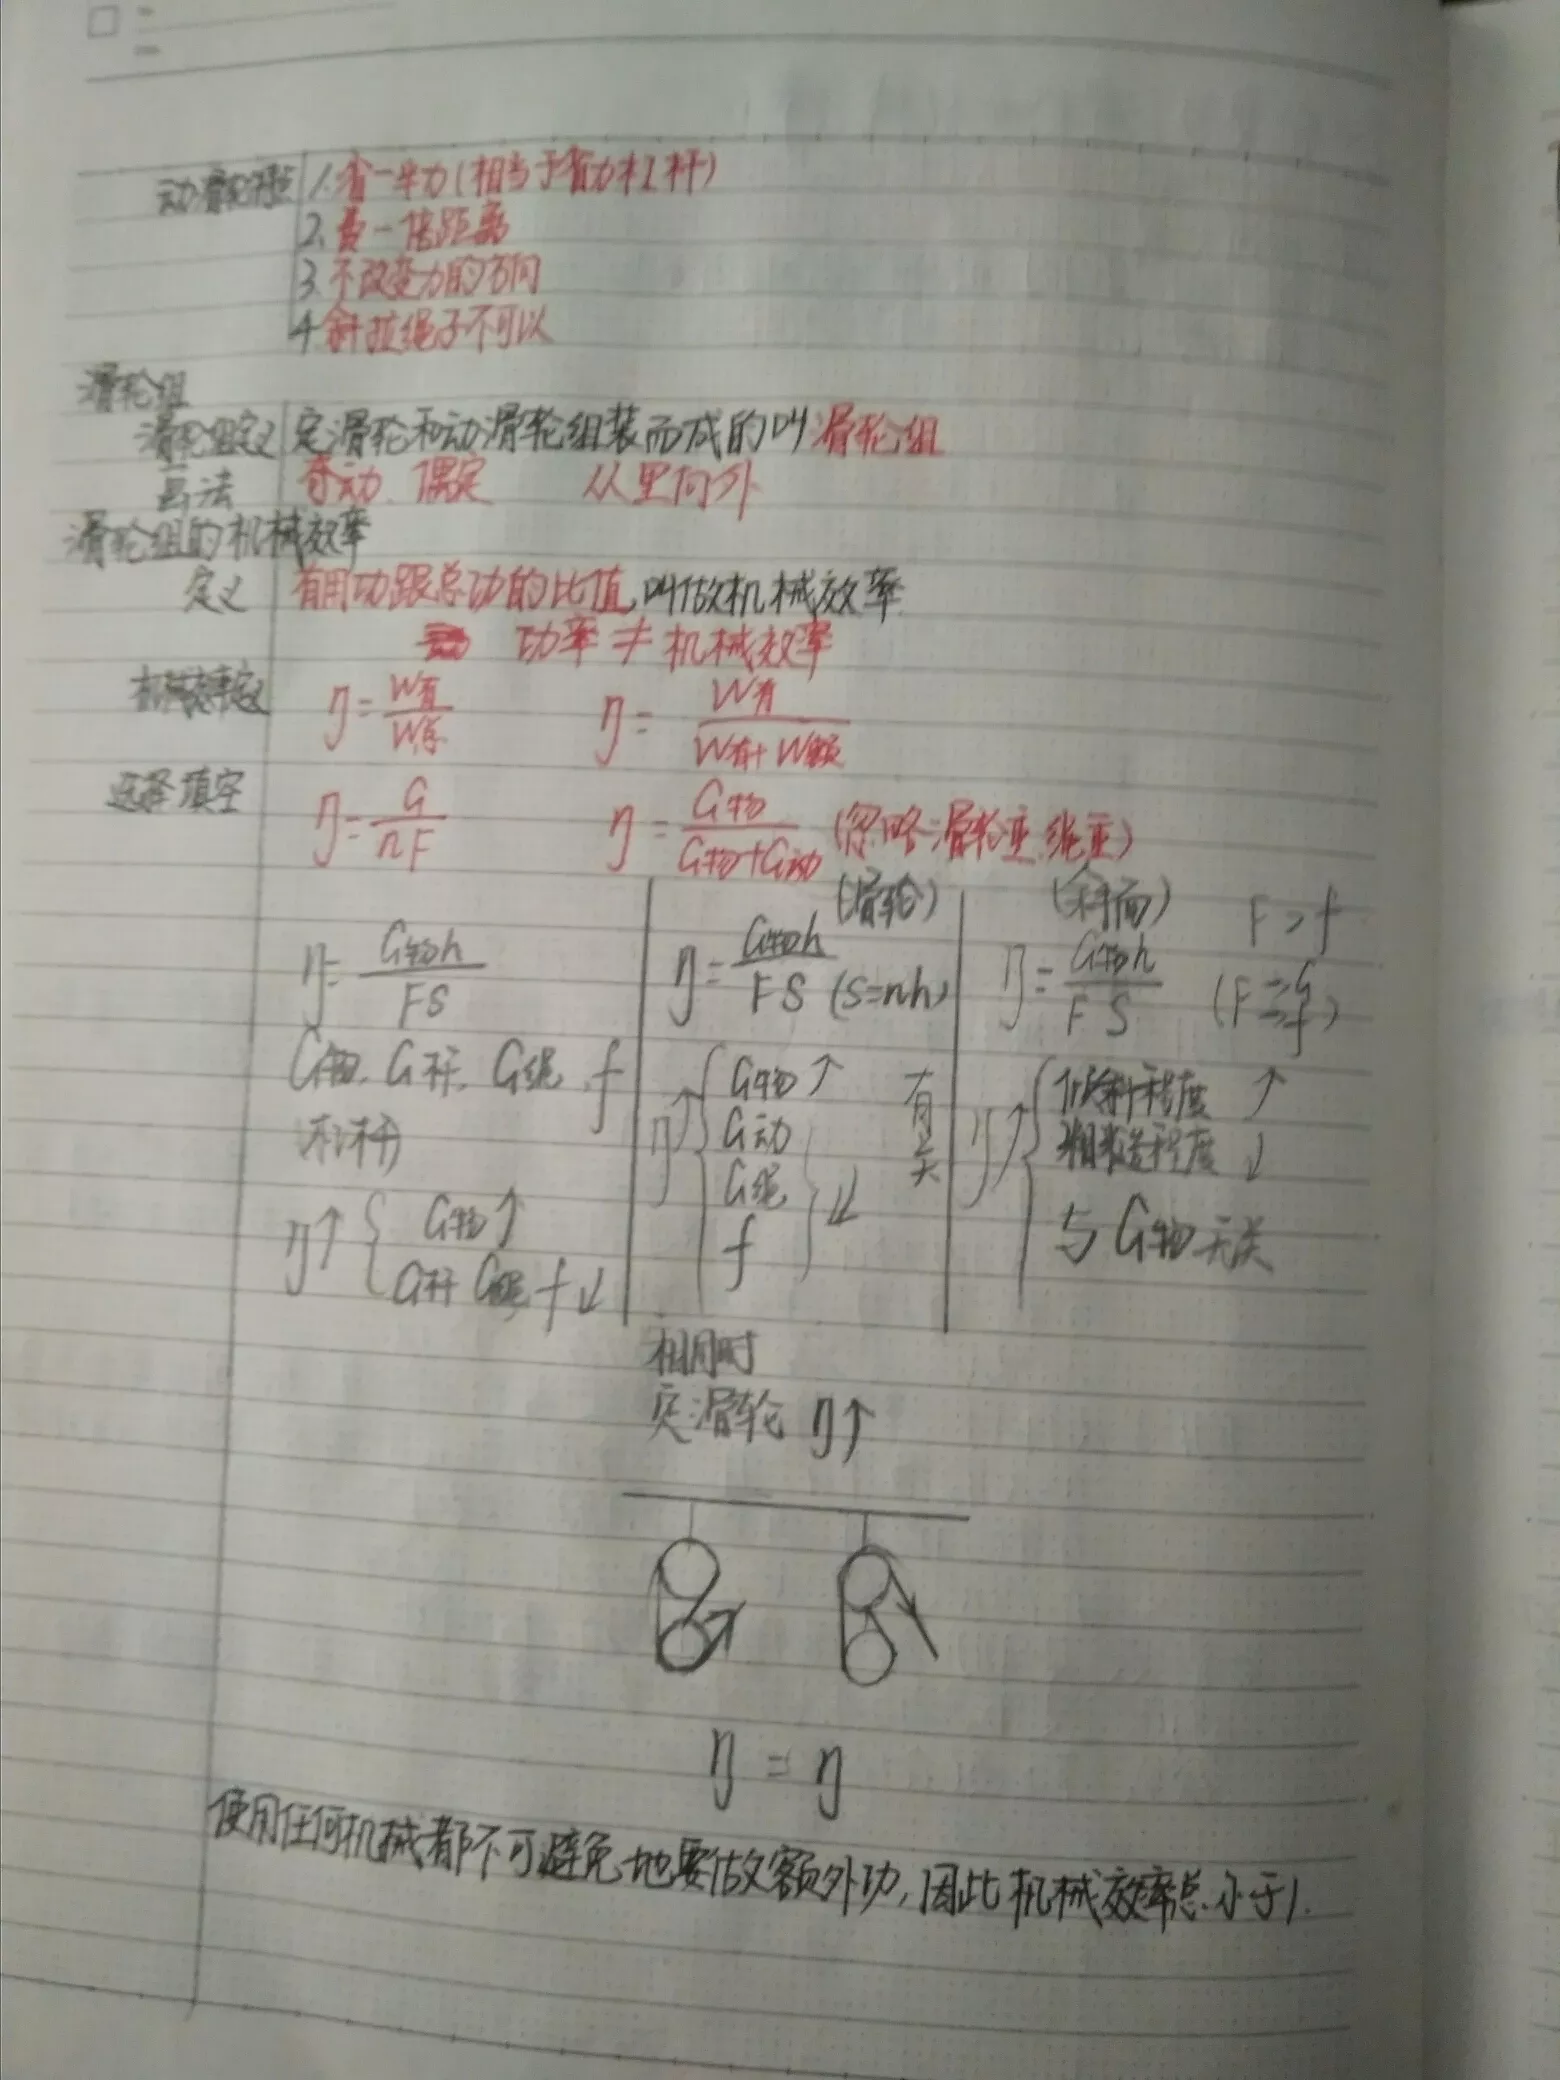 动滑轮特点 1.省一半力(相当于省力杠杆)
2.费一倍距离
3.不改变力的方向
4.斜拉绳子不可以
滑轮组
滑轮组定义 定滑轮和动滑轮组装而成的叫滑轮组
画法 奇动、偶定 从里向外
滑轮组的机械效率
定义 有用功跟总功的比值,叫做机械效率
功率≠机械效率
机械效率定义 η=W有/W总 η=W有/(W有+W额)
选择填空 η=G/nF η=G物/(G物+G动) (忽略滑轮重、绳重)
(滑轮) (斜面) F>f
η=G物h/FS η=G物h/FS (S=nh) η=G物h/FS (F≥G f)
G物、G杆、G绳、f η↑{G物↑ 有关 η↑{倾斜程度↑
(杠杆) G动 粗糙程度↓
G绳 ↓
η↑{G物↑ f 与G物无关
G杆 G绳 f↓
相同时
定滑轮 η↑
η=η
使用任何机械都不可避免地要做额外功,因此机械效率总小于1.